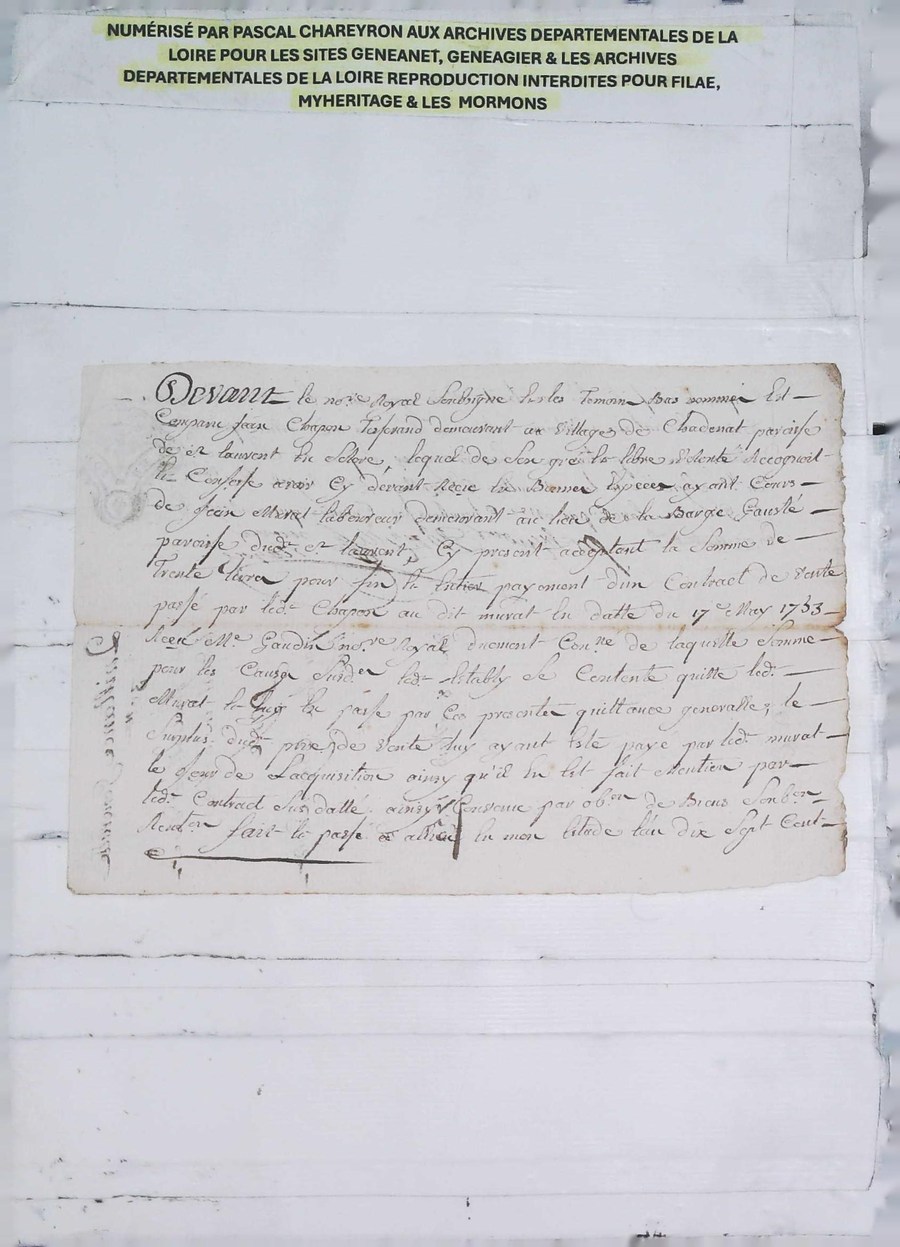 NUMÉRISÉ PAR PASCAL CHAREYRON AUX ARCHIVES DEPARTEMENTALES DE LA
LOIRE POUR LES SITES GENEANET, GENEAGIER & LES ARCHIVES
DEPARTEMENTALES DE LA LOIRE REPRODUCTION INTERDITES POUR FILAE,
MYHERITAGE & LES MORMONS
Devant le nore Royal Soubsigné et les Temoins Bas nommés Est
Comparu Jean Chapon Tisserand demeurant au village de Chadenat paroisse
de st laurent en Solore, lequel de son gré et libre volonté Recognoit
et Confesse avoir Cy devant Receu en Bonnes Especes ayant Cours
de Jean Murat laboureur demeurant au lieu de la Barge
paroisse dudt st laurent, Cy present acceptant la Somme de
Trente livres pour fin et Entier payement d'un Contract de vente
passé par ledt Chapon au dit murat en datte du 17e May 1753
Receu Me Gaudin nore Royal duement Conllé de laquelle Somme
pour les Causes susdes ledt Estably Se Contente quitte ledt
Murat et luy En passe par Ces presentes quittance generalle, le
Surplus dudt prix de vente luy ayant Esté payé par ledt murat
le Jour de L'acquisition ainsy qu'il En Est fait Mention par
ledt Contract Sus datté ainsy Convenu par obon de Biens Soubon
Renton fait et passé en mon Etude l'an dix Sept Cent
Quittance